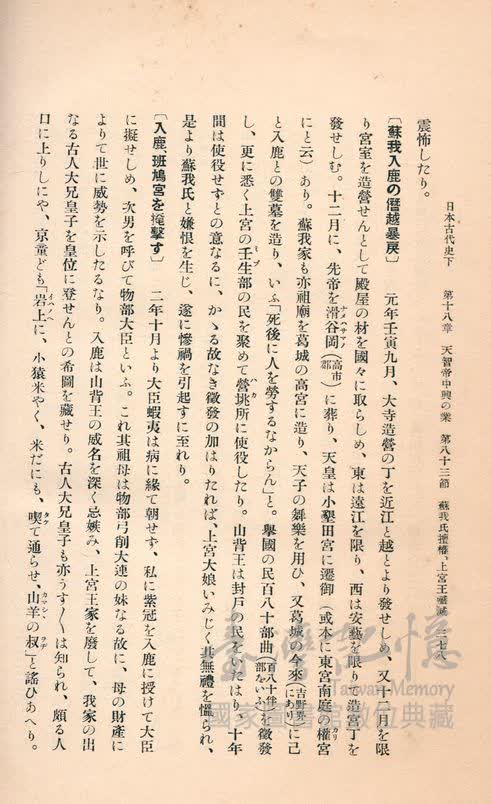 日本古代史下　第十八章　天智帝中興の業　第八十三節　蘇我氏擅権、上宮王　三七八
震怖したり。
〔蘇我入鹿の僭越暴戻〕　元年壬寅九月、大寺造營の丁を近江と越とより發せしめ、又十二月を限
り宮室を造營せんとして殿屋の材を國々に取らしめ、東は遠江を限り、西は安藝を限りて造宮丁を
發せしむ。十二月に、先帝を滑谷岡（高市郡）に葬り、天皇は小墾田宮に遷御（或本に東宮南庭の權宮
にと云）あり。蘇我家も亦祖廟を葛城の高宮に造り、天子の舞樂を用ひ、又葛城の今來（吉野郡にあり）に己
と入鹿との雙墓を造り、いふ「死後に人を勞するなからん」と。擧國の民百八十部曲（百八十伴部をいふ）を徵發
し、更に悉く上宮の壬生部の民を聚めて營垗所に使役したり。山背王は封戸の民をいたはり、十年
間は使役せずとの意なるに、かゝる故なき徵發の加はりたれば、上宮大娘いみじく其無禮を慍られ、
是より蘇我氏と嫌恨を生じ、遂に慘禍を引起すに至れり。
〔入鹿、斑鳩宮を掩擊す〕　二年十月より大臣蝦夷は病に緣て朝せず、私に紫冠を入鹿に授けて大臣
に擬せしめ、次男を呼びて物部大臣といふ。これ其祖母は物部弓削大連の妹なる故に、母の財產に
よりて世に威勢を示したるなり。入鹿は山背王の威名を深く忌嫉み、上宮王家を廢して、我家の出
なる古人大兄皇子を皇位に登せんとの希圖を藏せり。古人大兄皇子も亦うす〱は知られ、頗る人
口に上りしにや、京童ども「岩上に、小猿米やく、米だにも、喫て通らせ、山羊の叔」と謠ひあへり。
臺灣記憶
Taiwan Memory
國家圖書館數位典藏